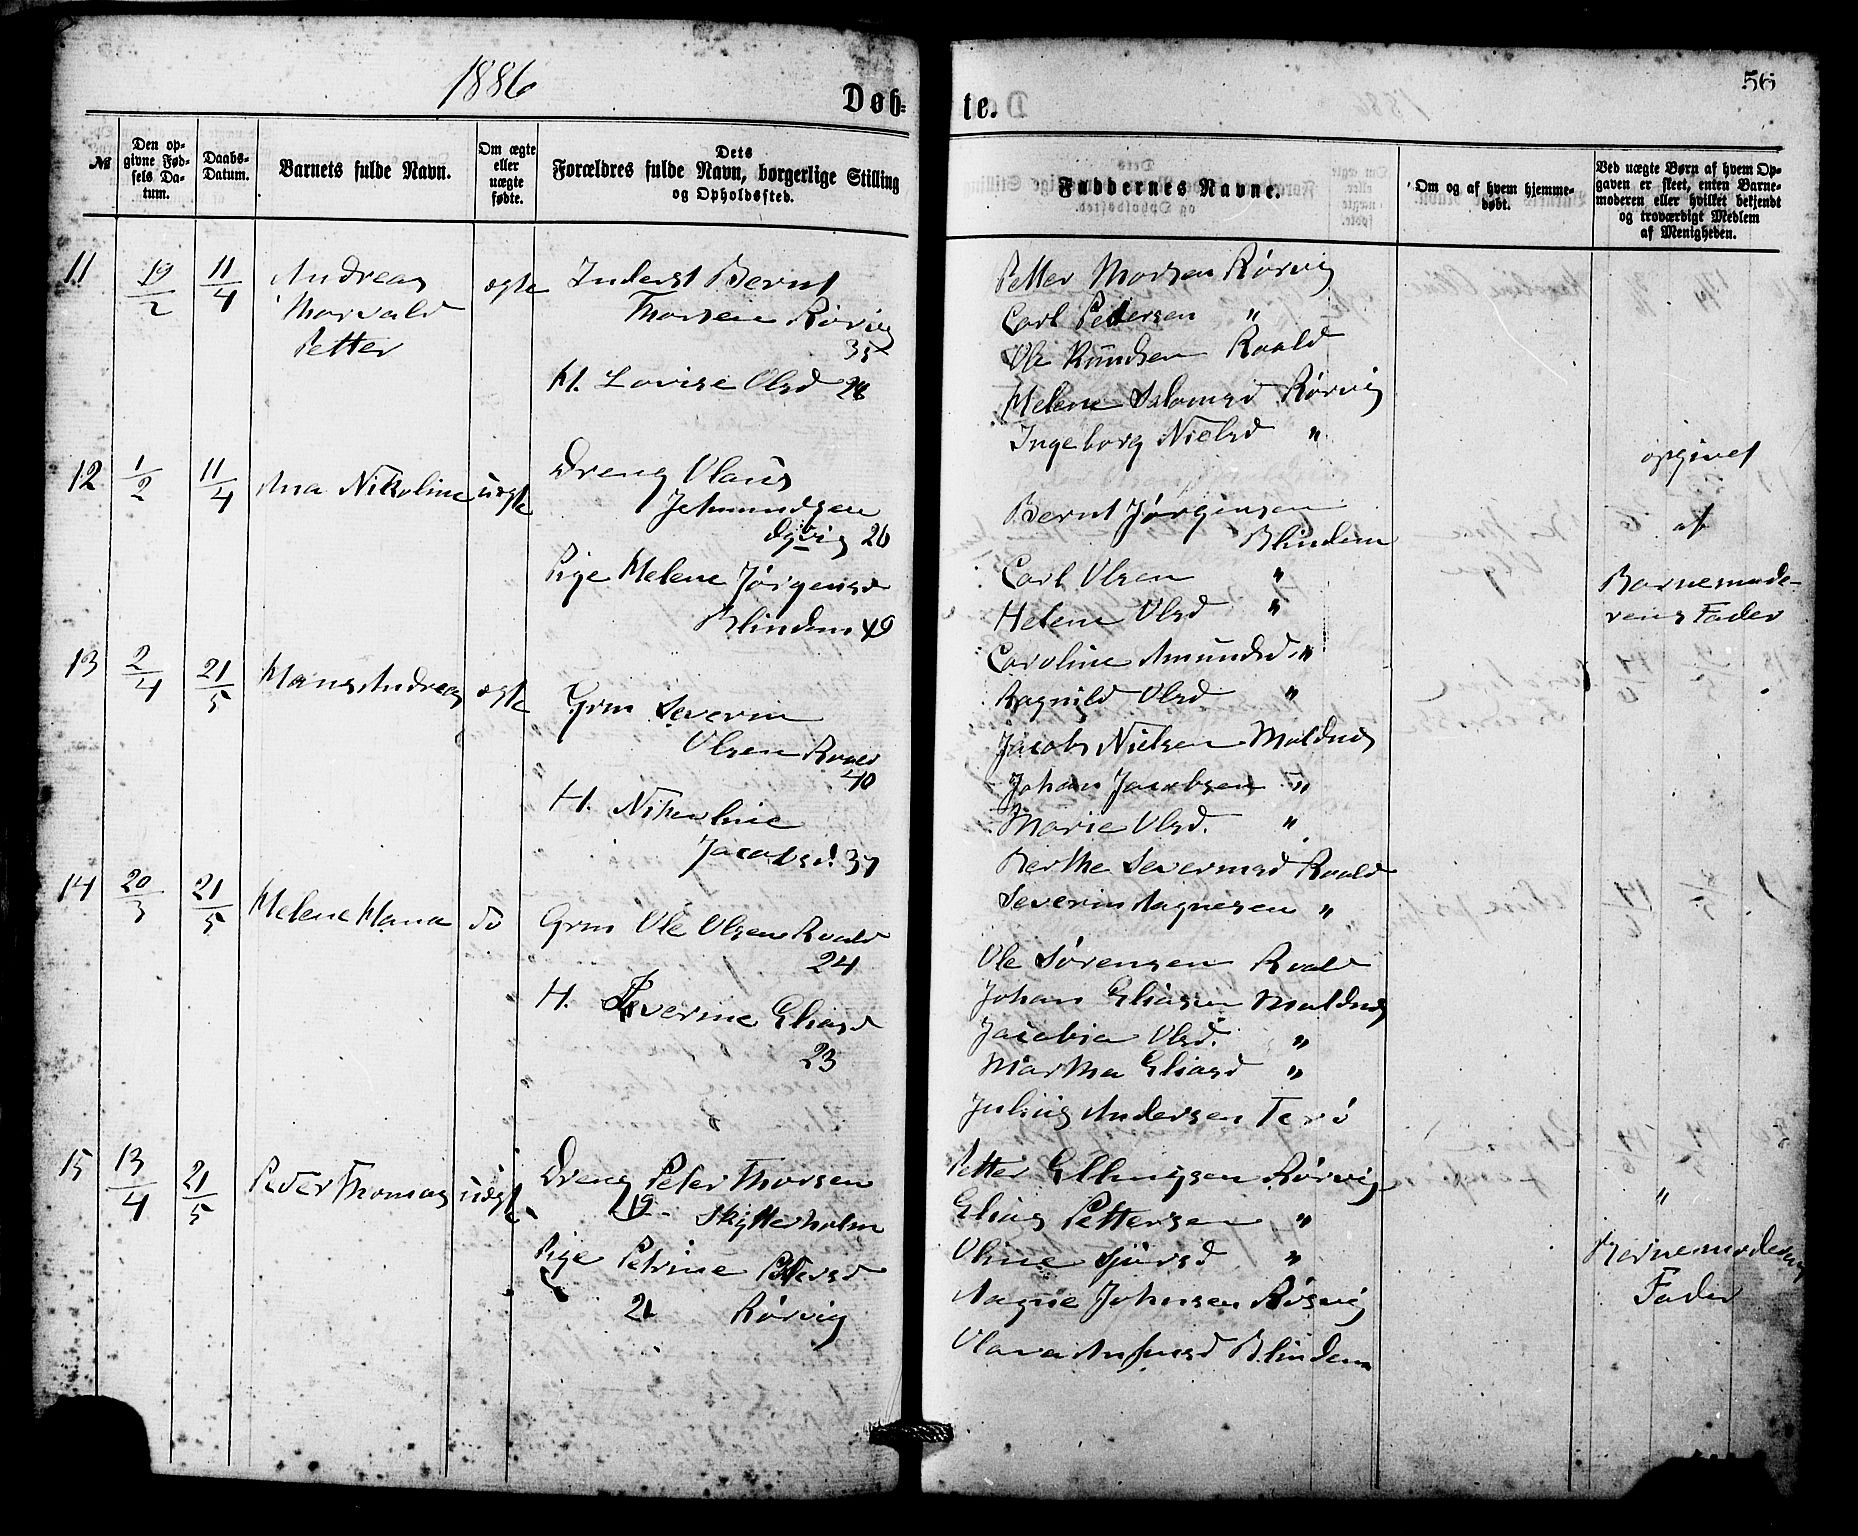 1886
Døb-
te.
56
№
Den op-
givne Fød-
sels Da-
tum.
Daabs-
Datum.
Barnets fulde Navn.
Om ægte
eller
uægte
fødte.
Dets
Forældres fulde Navn, borgerlige Stilling
og Opholdssted.
Faddernes Navne.
Om og af hvem hjemme-
døbt.
Ved uægte Børn af hvem Op-
gaven er skeet, enten Barne-
moderen eller hvilket bekjendt
og troværdigt Medlem
af Menigheden.
11
19/2
11/4
Andreas
Thorvald
Petter
ægte
Inderst Bernt
Thorsen Rørvig
35
H. Lovise Olsd 28
Petter Thorsen Rørvig
Carl Petersen "
Ole Knudsen Roald
Helene Salomsd Rørvig
Ingeborg Nielsd "
12
1/2
11/4
Ana Nikoline
uægte
Dreng Olaus
Jetmundsen
Dyvig 26
Pige Helene Jørgensd
Blindem 49
Bernt Jørginsen
Blindem
Carl Olsen "
Helene Olsd "
Caroline Amundsd "
Ragnild Olsd "
opgivet
af
Barnemode-
rens Fader
13
2/4
21/5
Hans Andreas
ægte
Grm Severin
Olsen Roald
40
H. Nikoline
Jacobsd. 37
Jacob Nielsen Moldnes
Johan Jacobsen "
Marie Olsd. "
Berthe Severinsd Roald
Severin Aagnesen "
14
20/3
21/5
Helene Hana
do
Grm Ole Olsen Roald
24
H. Severine Eliasd
23
Ole Sørensen Roald
Johan Eliasen Moldnes
Jacobia Olsd. "
Martha Eliasd "
Julius Andersen Terø
15
13/4
21/5
Peder Thomas
uægte
Dreng Peter Thorsen
19 Skytterholm
Pige Petrine Petersd
21 Rørvig
Petter Ellingsen Rørvig
Elias Pettersen "
Oline Sjursd "
Aagne Johnsen Rørvig
Olava Blindem
"
Barnemoderens
Fader